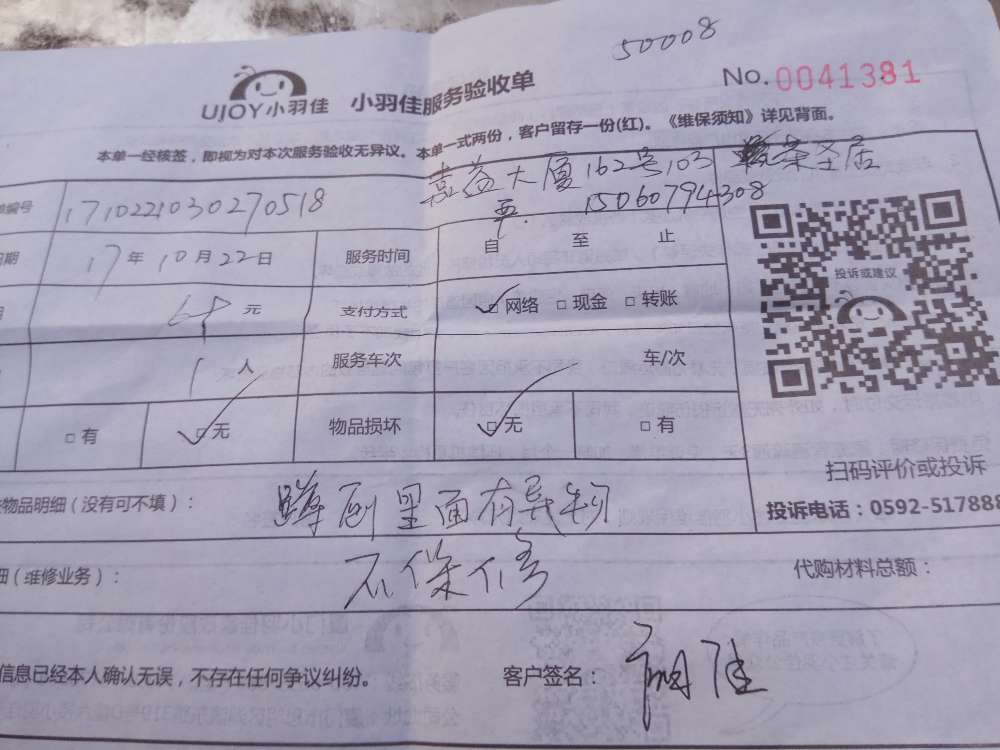 50008
UJOY小羽佳 小羽佳服务验收单 No.0041381
本单一经核签，即视为对本次服务验收无异议。本单一式两份，客户留存一份(红)。《维保须知》详见背面。
编号 1710221030270518 嘉益大厦162号103 荣圣居
15060794308
17年10月22日 服务时间 自 至 止
68元 支付方式 网络 现金 转账
1人 服务车次 车/次
有 无 物品损坏 无 有
投诉或建议
扫码评价或投诉
物品明细（没有可不填）： 蹲厕里面有异物 投诉电话：0592-517888
（维修业务）： 不保修 代购材料总额：
信息已经本人确认无误，不存在任何争议纠纷。 客户签名：